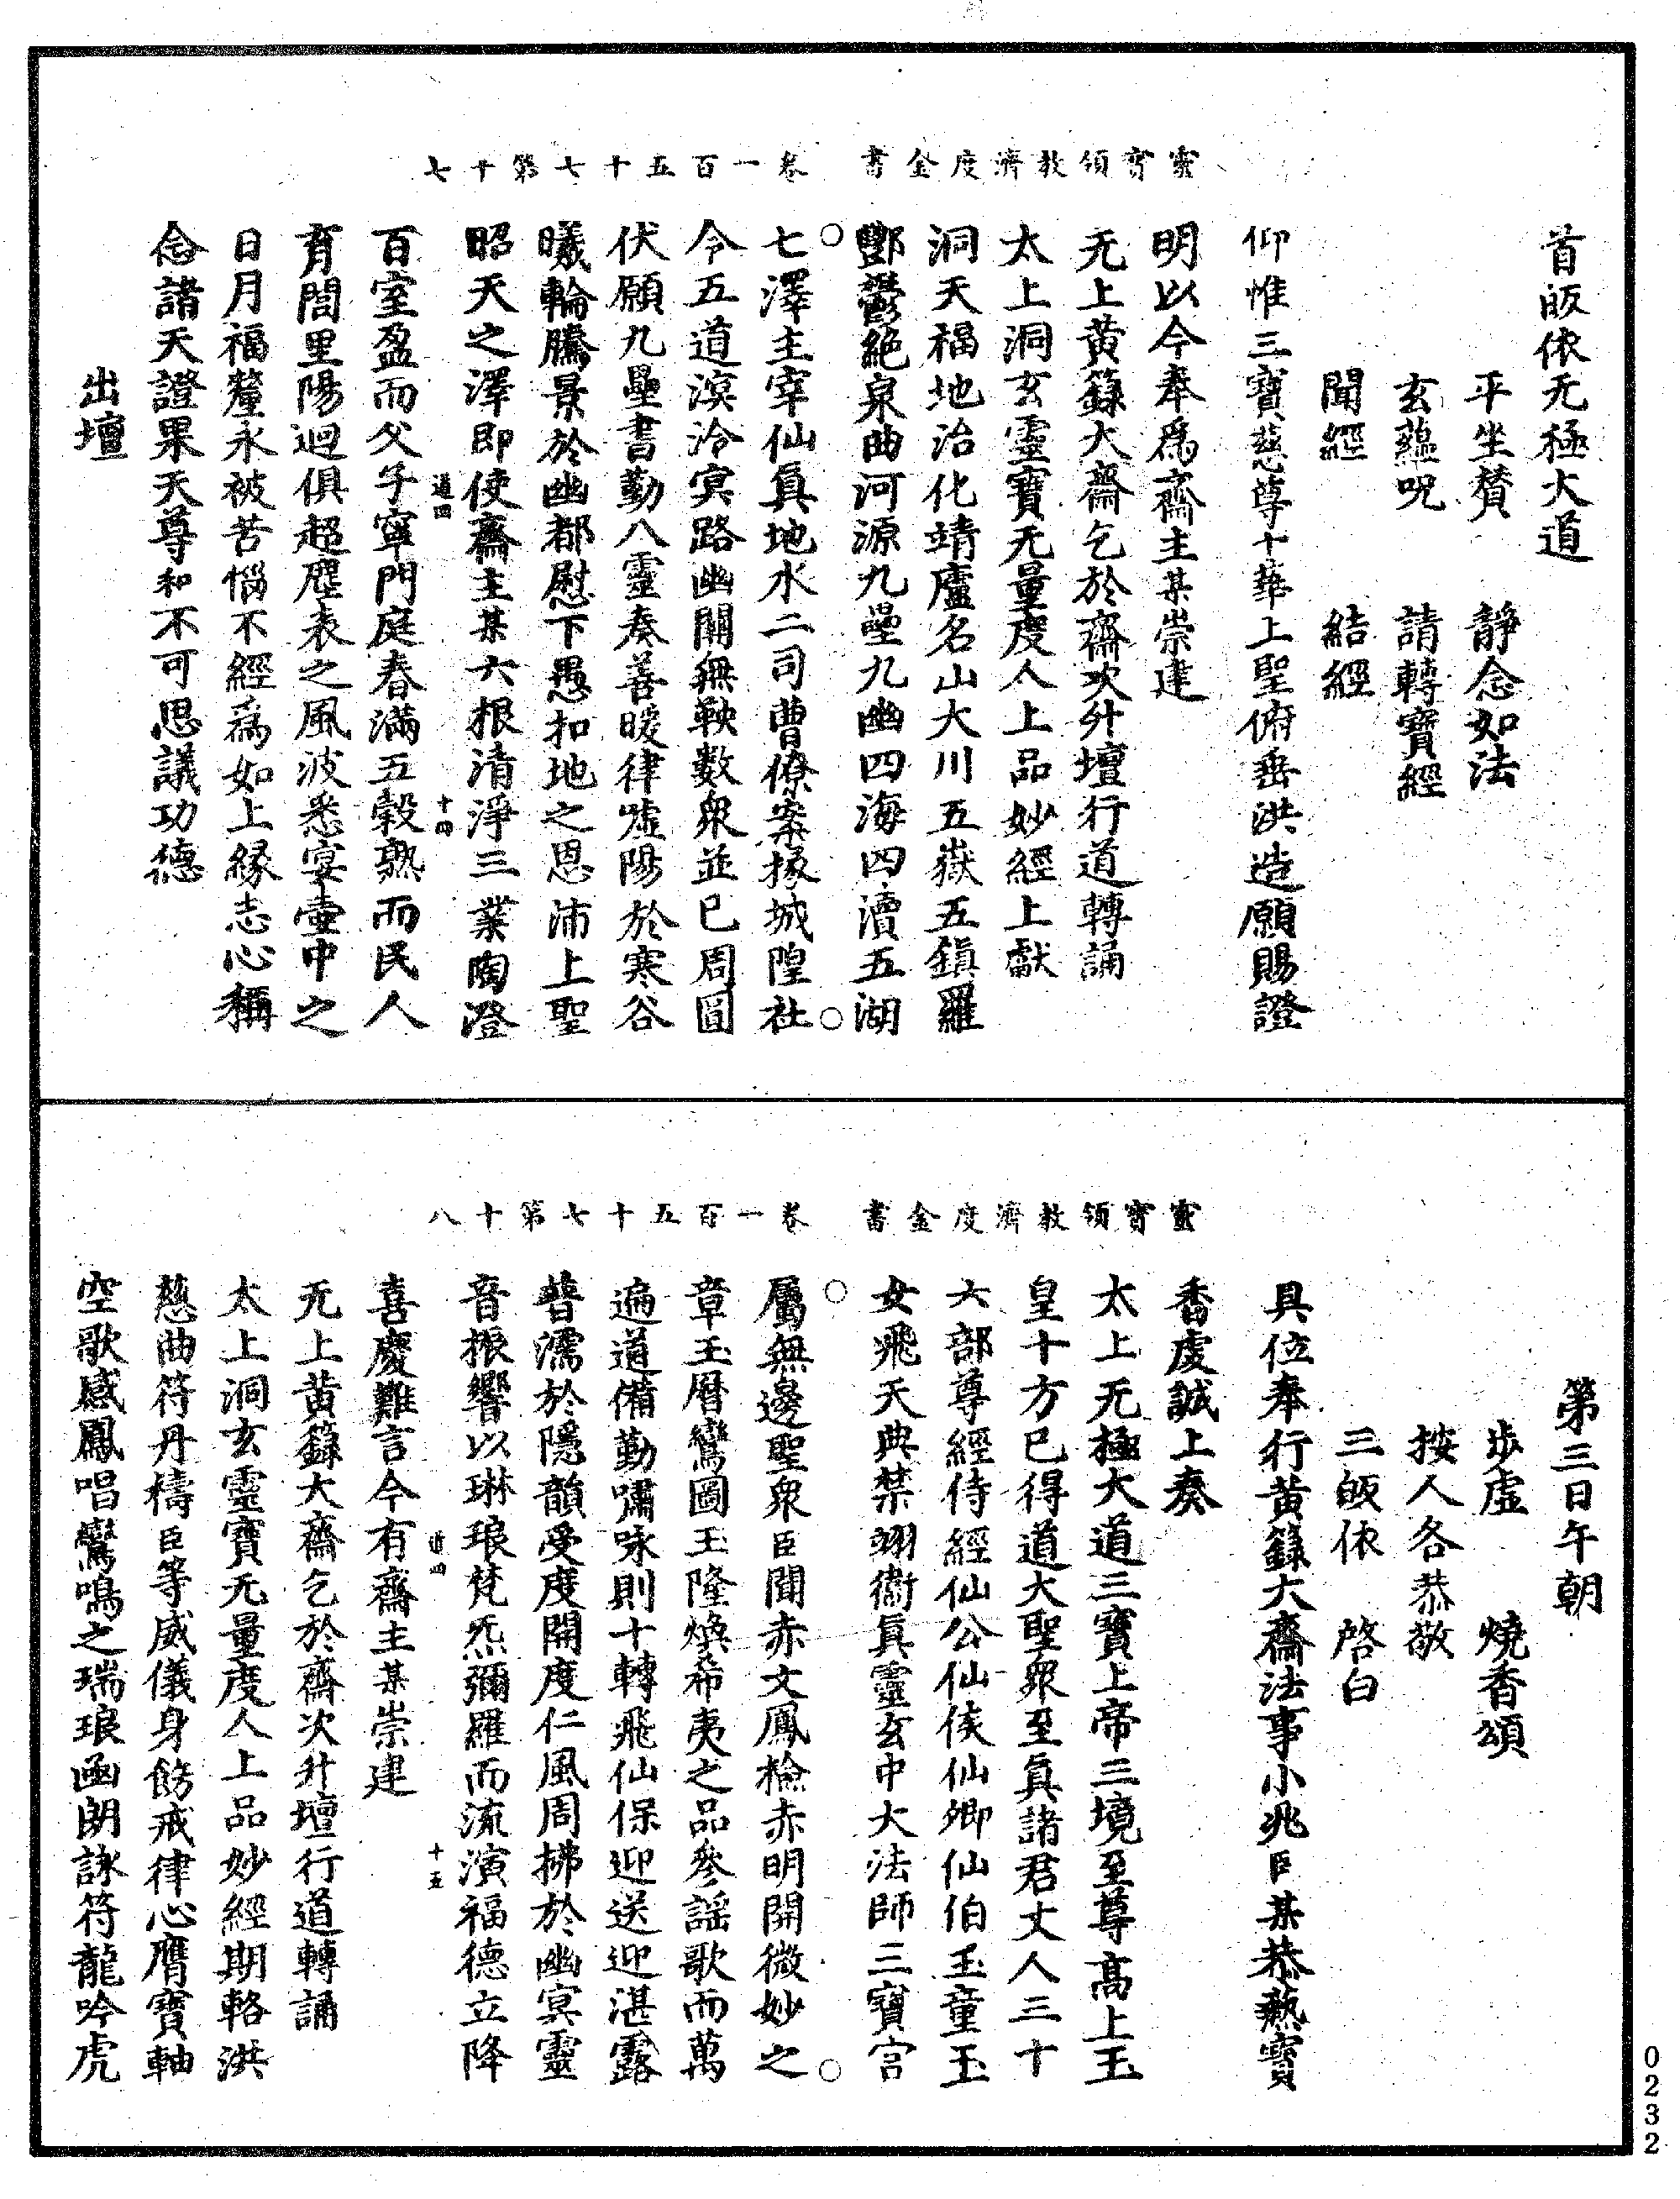 靈寶領教濟度金書　卷一百五十七第十七
首皈依无極大道
平坐贊　靜念如法
玄蘊呪　請轉寶經
聞經　結經
仰惟三寶慈尊十華上聖俯垂洪造願賜證
明以今奉為齋主某崇建
无上黃籙大齋乞於齋次升壇行道轉誦
太上洞玄靈寶无量度人上品妙經上獻
洞天福地治化靖廬名山大川五嶽五鎮羅
酆鬱絕泉曲河源九壘九幽四海四瀆五湖
七澤主宰仙真地水二司曹僚案掾城隍社
令五道溟泠冥路幽關無鞅數眾並已周圓
伏願九壘書勤八靈奏善暖律噓陽於寒谷
曦輪騰景於幽都慰下愚扣地之恩沛上聖
昭天之澤即使齋主某六根清淨三業陶澄
道四　十四
百室盈而父子寧門庭春滿五穀熟而民人
育閭里陽迴俱超塵表之風波悉宴壺中之
日月福釐永被苦惱不經為如上緣志心稱
念諸天證果天尊和不可思議功德
出壇
靈寶領教濟度金書　卷一百五十七第十八
第三日午朝
步虛　燒香頌
按人各恭敬
三皈依　啓白
具位奉行黃籙大齋法事小兆臣某恭爇寶
香虔誠上奏
太上无極大道三寶上帝三境至尊高上玉
皇十方已得道大聖眾至真諸君丈人三十
六部尊經侍經仙公仙侯仙卿仙伯玉童玉
女飛天典禁翊衞真靈玄中大法師三寶官
屬無邊聖眾臣聞赤文鳳檢赤明開微妙之
章玉曆鸞圖玉隆煥希夷之品參謠歌而萬
遍道備勤嘯咏則十轉飛仙保迎送迎湛露
普濡於隱韻受度開度仁風周拂於幽冥靈
音振響以琳琅梵炁彌羅而流演福德立降
道四　十五
喜慶難言今有齋主某崇建
无上黃籙大齋乞於齋次升壇行道轉誦
太上洞玄靈寶无量度人上品妙經期輅洪
慈曲符丹檮臣等威儀身飭戒律心膺寶軸
空歌感鳳唱鸞鳴之瑞琅函朗詠符龍吟虎
0232